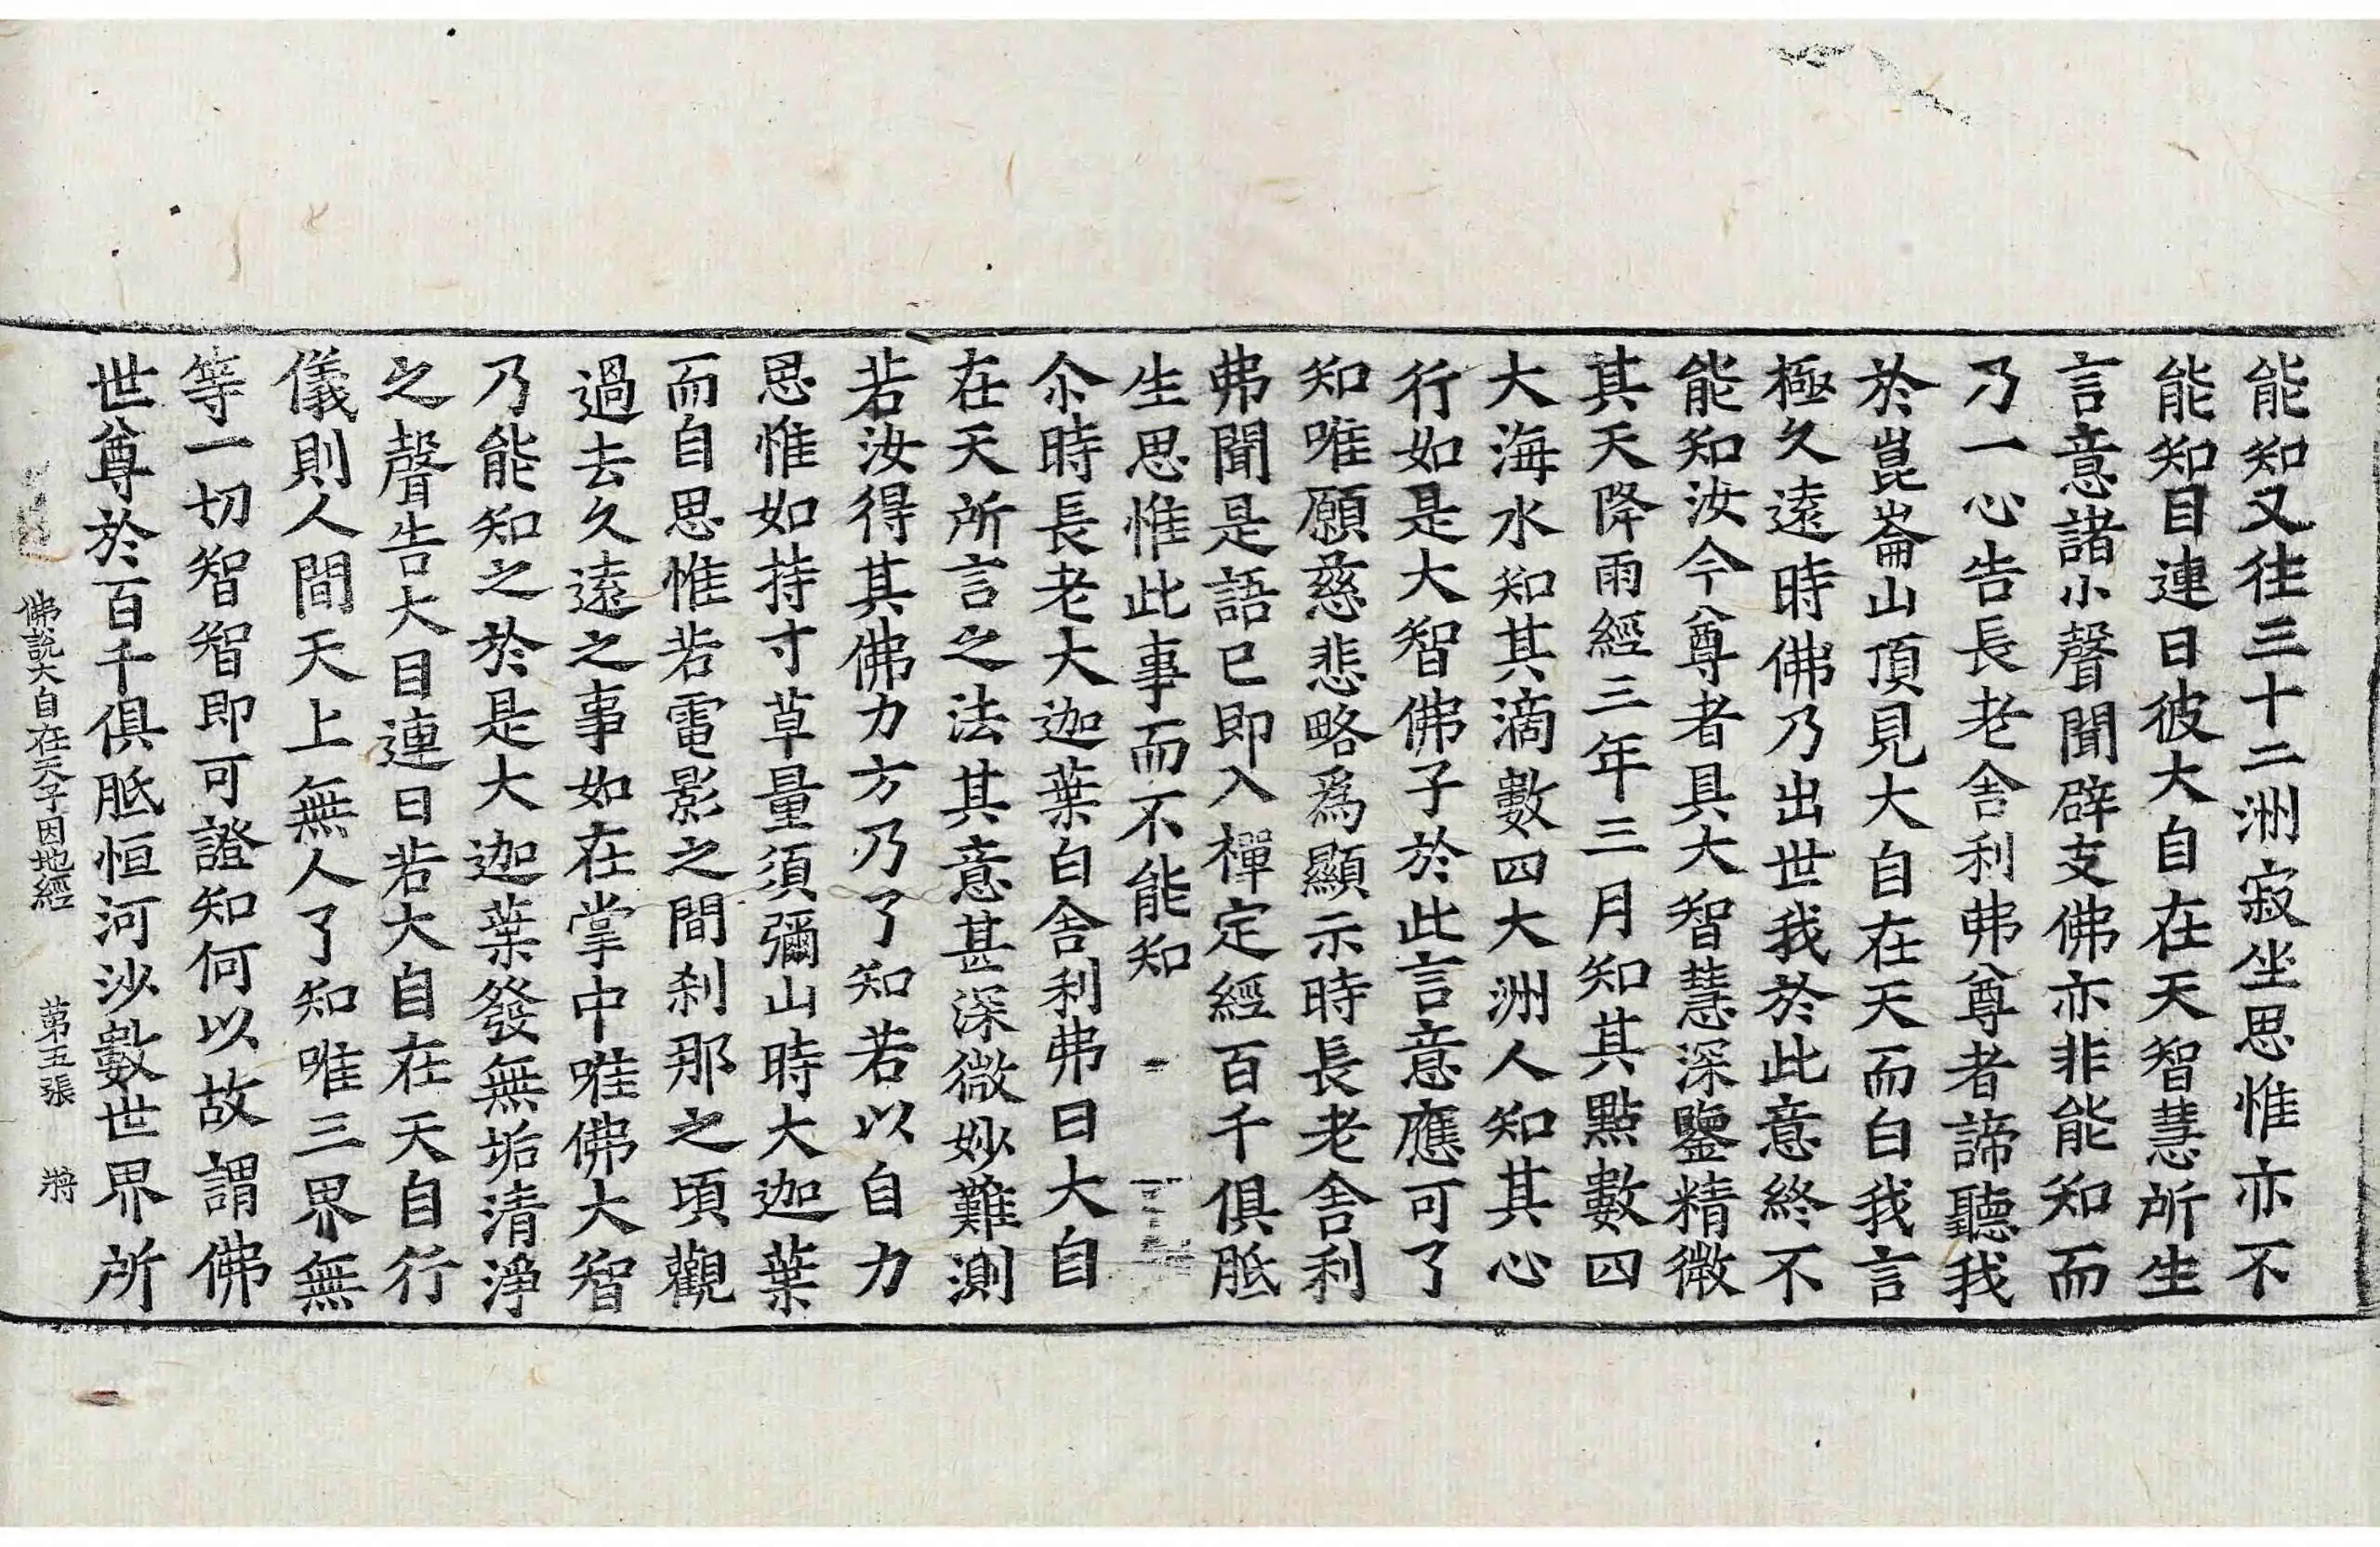 能知又往三十二洲寂坐思惟亦不
能知目連曰彼大自在天智慧所生
言意諸小聲聞辟支佛亦非能知而
乃一心告長老舍利弗尊者諦聽我
於崑崙山頂見大自在天而白我言
極久遠時佛乃出世我於此意終不
能知汝今尊者具大智慧深鑒精微
其天降雨經三年三月知其點數四
大海水知其滴數四大洲人知其心
行如是大智佛子於此言意應可了
知唯願慈悲略爲顯示時長老舍利
弗聞是語已即入禪定經百千俱胝
生思惟此事而不能知
尒時長老大迦葉白舍利弗曰大自
在天所言之法其意甚深微妙難測
若汝得其佛力方乃了知若以自力
思惟如持寸草量須彌山時大迦葉
而自思惟若電影之間刹那之頃觀
過去久遠之事如在掌中唯佛大智
乃能知之於是大迦葉發無垢清淨
之聲告大目連曰若大自在天自行
儀則人間天上無人了知唯三界無
等一切智智即可證知何以故謂佛
世尊於百千俱胝恒河沙數世界所
佛說大自在天子因地經 第五張 將